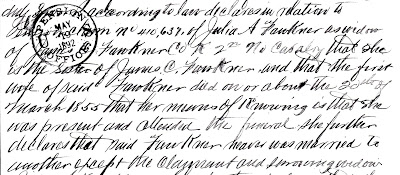 duly sworn according to law declares in relation to
Pension Claim No 410,657, of Julia A Faulkner as widow
of James C Faulkner Co K 2nd Mo Cavalry that she
is the sister of James C. Faulkner and that the first
wife of said Faulkner died on or about the
March 1855 that her means of Knowing is that she
was present and attended the funeral she further
declares that said Faulkner never was married to
another except the Claymant and surviving widow
PENSION OFFICE
MAY
1892